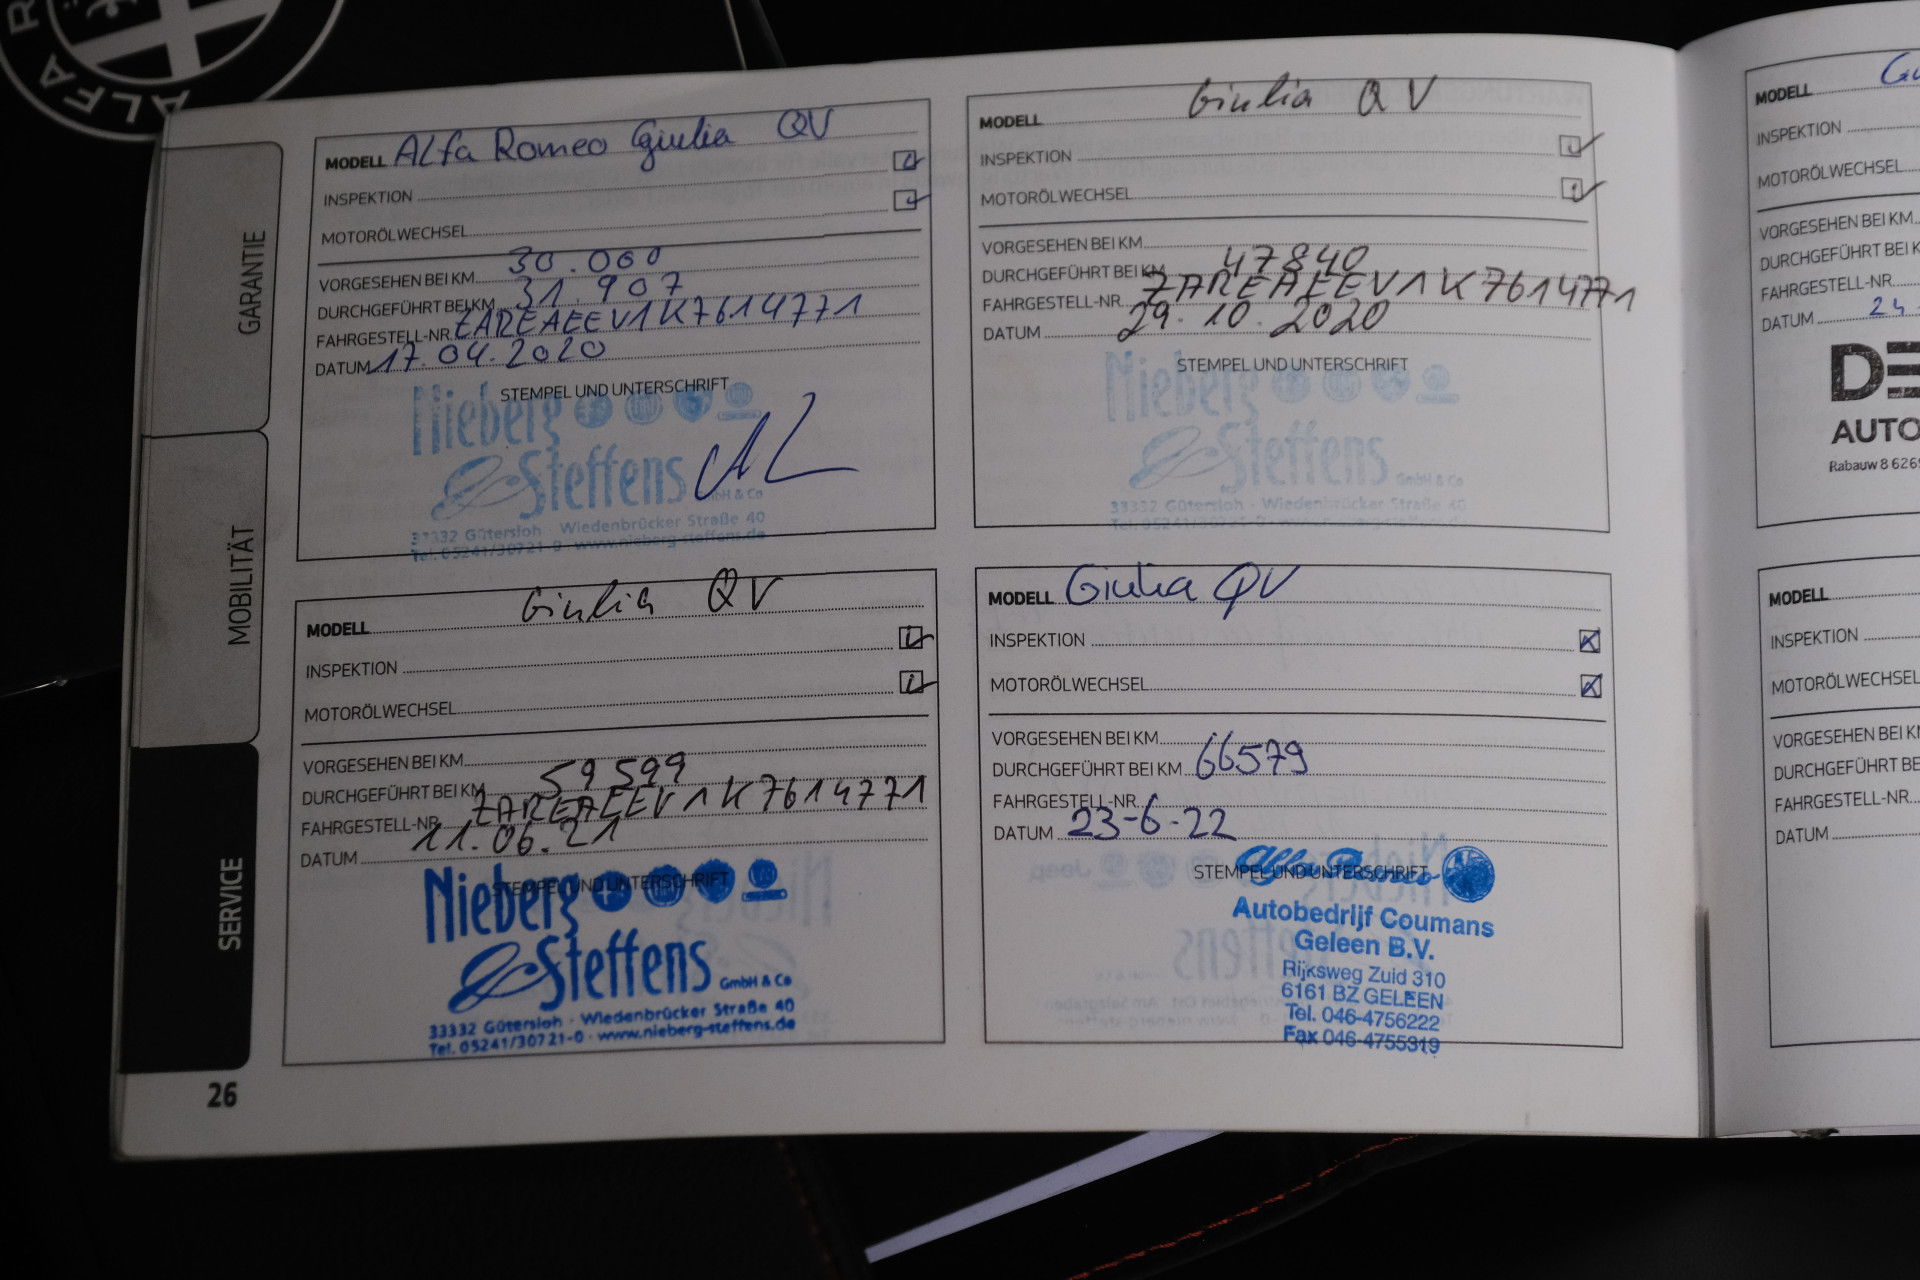 ALFA R
GARANTIE
MOBILITÄT
SERVICE
MODELL Alfa Romeo Giulia QV
INSPEKTION
MOTORÖLWECHSEL
VORGESEHEN BEI KM 30.000
DURCHGEFÜHRT BEI KM 31.907
FAHRGESTELL-NR ZAREAEEV1K7614771
DATUM 17.04.2020
STEMPEL UND UNTERSCHRIFT
Nieberg
& Steffens GmbH & Co
33332 Gütersloh · Wiedenbrücker Straße 40
Tel. 05241/30721-0 · www.nieberg-steffens.de
MODELL Giulia QV
INSPEKTION
MOTORÖLWECHSEL
VORGESEHEN BEI KM
DURCHGEFÜHRT BEI KM 47840
FAHRGESTELL-NR. ZAREAEEV1K7614771
DATUM 29.10.2020
STEMPEL UND UNTERSCHRIFT
Nieberg
& Steffens GmbH & Co
33332 Gütersloh · Wiedenbrücker Straße 40
Tel. 05241/30721-0 · www.nieberg-steffens.de
MODELL Giulia QV
INSPEKTION
MOTORÖLWECHSEL
VORGESEHEN BEI KM
DURCHGEFÜHRT BEI KM 59599
FAHRGESTELL-NR. ZAREAEEV1K7614771
DATUM 11.06.21
STEMPEL UND UNTERSCHRIFT
Nieberg
& Steffens GmbH & Co
33332 Gütersloh · Wiedenbrücker Straße 40
Tel. 05241/30721-0 · www.nieberg-steffens.de
MODELL Giulia QV
INSPEKTION
MOTORÖLWECHSEL
VORGESEHEN BEI KM
DURCHGEFÜHRT BEI KM 66579
FAHRGESTELL-NR.
DATUM 23-6-22
STEMPEL UND UNTERSCHRIFT
Alfa Romeo
Autobedrijf Coumans
Geleen B.V.
Rijksweg Zuid 310
6161 BZ GELEEN
Tel. 046-4756222
Fax 046-4755319
26
MODELL
INSPEKTION
MOTORÖLWECHSEL
VORGESEHEN BEI KM
DURCHGEFÜHRT BEI K
FAHRGESTELL-NR.
DATUM 24
DE
AUTO
Rabauw 8 626
MODELL
INSPEKTION
MOTORÖLWECHSEL
VORGESEHEN BEI KM
DURCHGEFÜHRT BE
FAHRGESTELL-NR.
DATUM